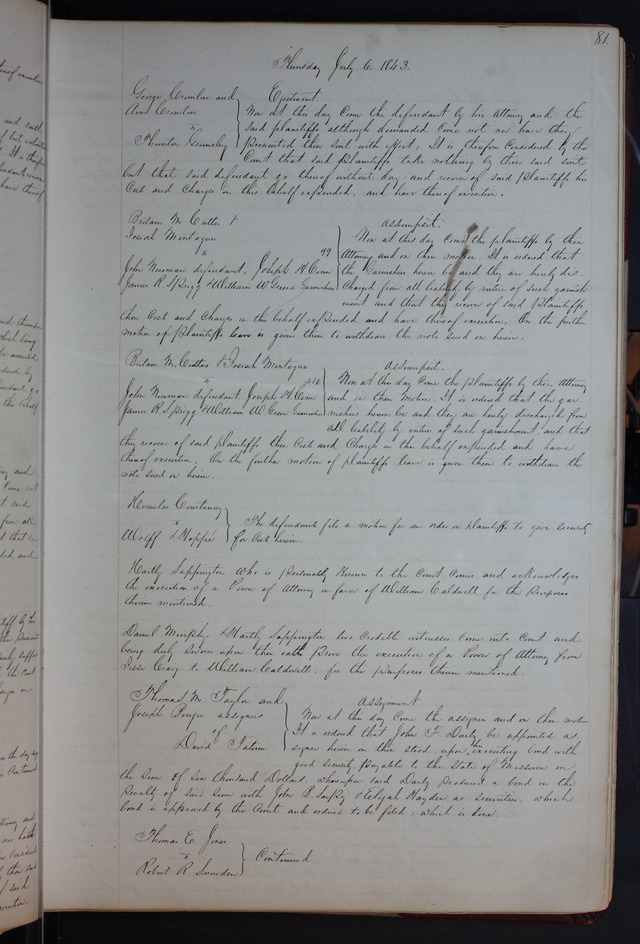 81.
Thursday July 6. 1843.
George Crumlow and Ann Crumlow
vs
Thornton Grimsley
Ejectment.
Now at this day Come the defendant by his Attorney and the
said plaintiffs although demanded Come not nor have they
prosecuted their suit with effect, It is therefore Considered by the
Court that said plaintiffs take nothing by their said suit
but that said defendant go thereof without day and recover of said plaintiffs his
Cost and Charges in this behalf expended, and have thereof execution.
Britain M. Cutter &
Josiah Montague
vs 99
John Newman defendant, Joseph H. Conn
James R. Sprigg & William W Greene Garnishees
assumpsit.
Now at this day Come the plaintiffs by their
Attorney and on their motion, It is ordered that
the Garnishees herein be and they are hereby dis-
Charged from all liability by virtue of such garnish-
ment and that they recover of said plaintiffs
their Cost and Charges in this behalf expended and have thereof execution, On the further
motion of plaintiffs leave is given them to withdraw the note sued on herein.
Britain M. Cutter & Josiah Montague
vs
John Newman defendant Joseph H. Conn
James R. Sprigg & William W. Greene Garnishees
assumpsit.
Now at this day Come the plaintiffs by their Attorney
and on their Motion, It is ordered that the gar-
nishees herein be and they are hereby discharged from
all liability by virtue of such garnishment and that
they recover of said plaintiffs their Cost and Charges in this behalf expended and have
thereof execution, On the further motion of plaintiffs leave is given them to withdraw the
note sued on herein.
Courtenay
vs
Wolff & Hoppe
The defendants file a motion for an order on plaintiffs to give security
for Cost herein.
Hartly Sappington who is personally Known to the Court, Comes and acknowledges
the execution of a Power of Attorney in favor of William Caldwell for the purposes
therein mentioned.
Daniel Murphy & Hartly Sappington two Credible witnesses Come into Court and
being duly sworn upon their oath prove the execution of a Power of Attorney from
Jesse to William Caldwell, for the purposes therein mentioned.
Thomas M. Taylor and
Joseph assignees
of
David Tatum
Assignment.
Now at this day Come the assignees and on their motion
It is ordered that John F. Darby be appointed as-
signee herein in their stead, upon his executing bond with
good security, payable to the State of Missouri in
the sum of six thousand Dollars, whereupon said Darby produced a bond in the
penalty of said sum with John B. Sarpy & Elijah Hayden as securities, which
bond is approved by the Court and ordered to be filed, which is done.
Thomas E. Jones
vs
Robert R. Snowden
Continued